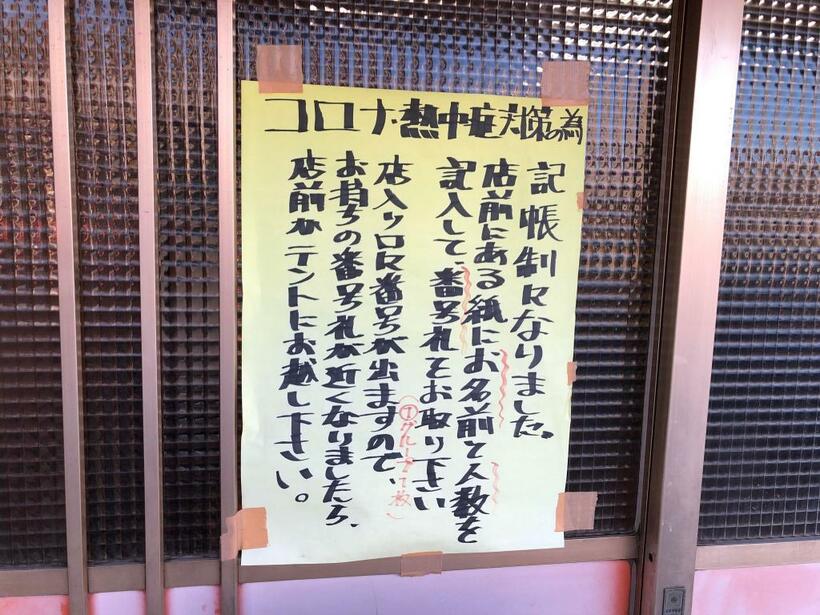 コロナ・熱中症対策の為
記帳制になりました。
店前にある紙にお名前と人数を
記入して、番号札をお取り下さい
(1グループ1枚)
店入り口に番号が出ますので、
お持ちの番号札が近くなりましたら、
店前のテントにお越し下さい。